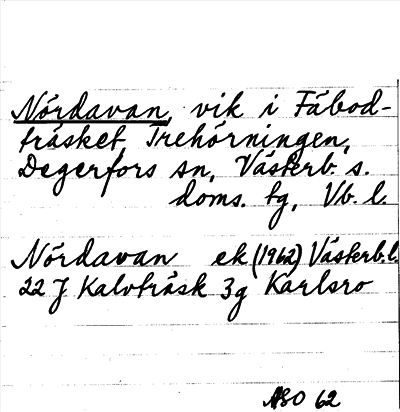 Nördavan, vik i Fäbod-
träsket, Trehörningen,
Degerfors sn, Västerb. s.
doms. tg, Vb. l.
Nördavan ek (1962) Västerb. l.
22 J Kalvträsk 3g Karlsro
ASO 62